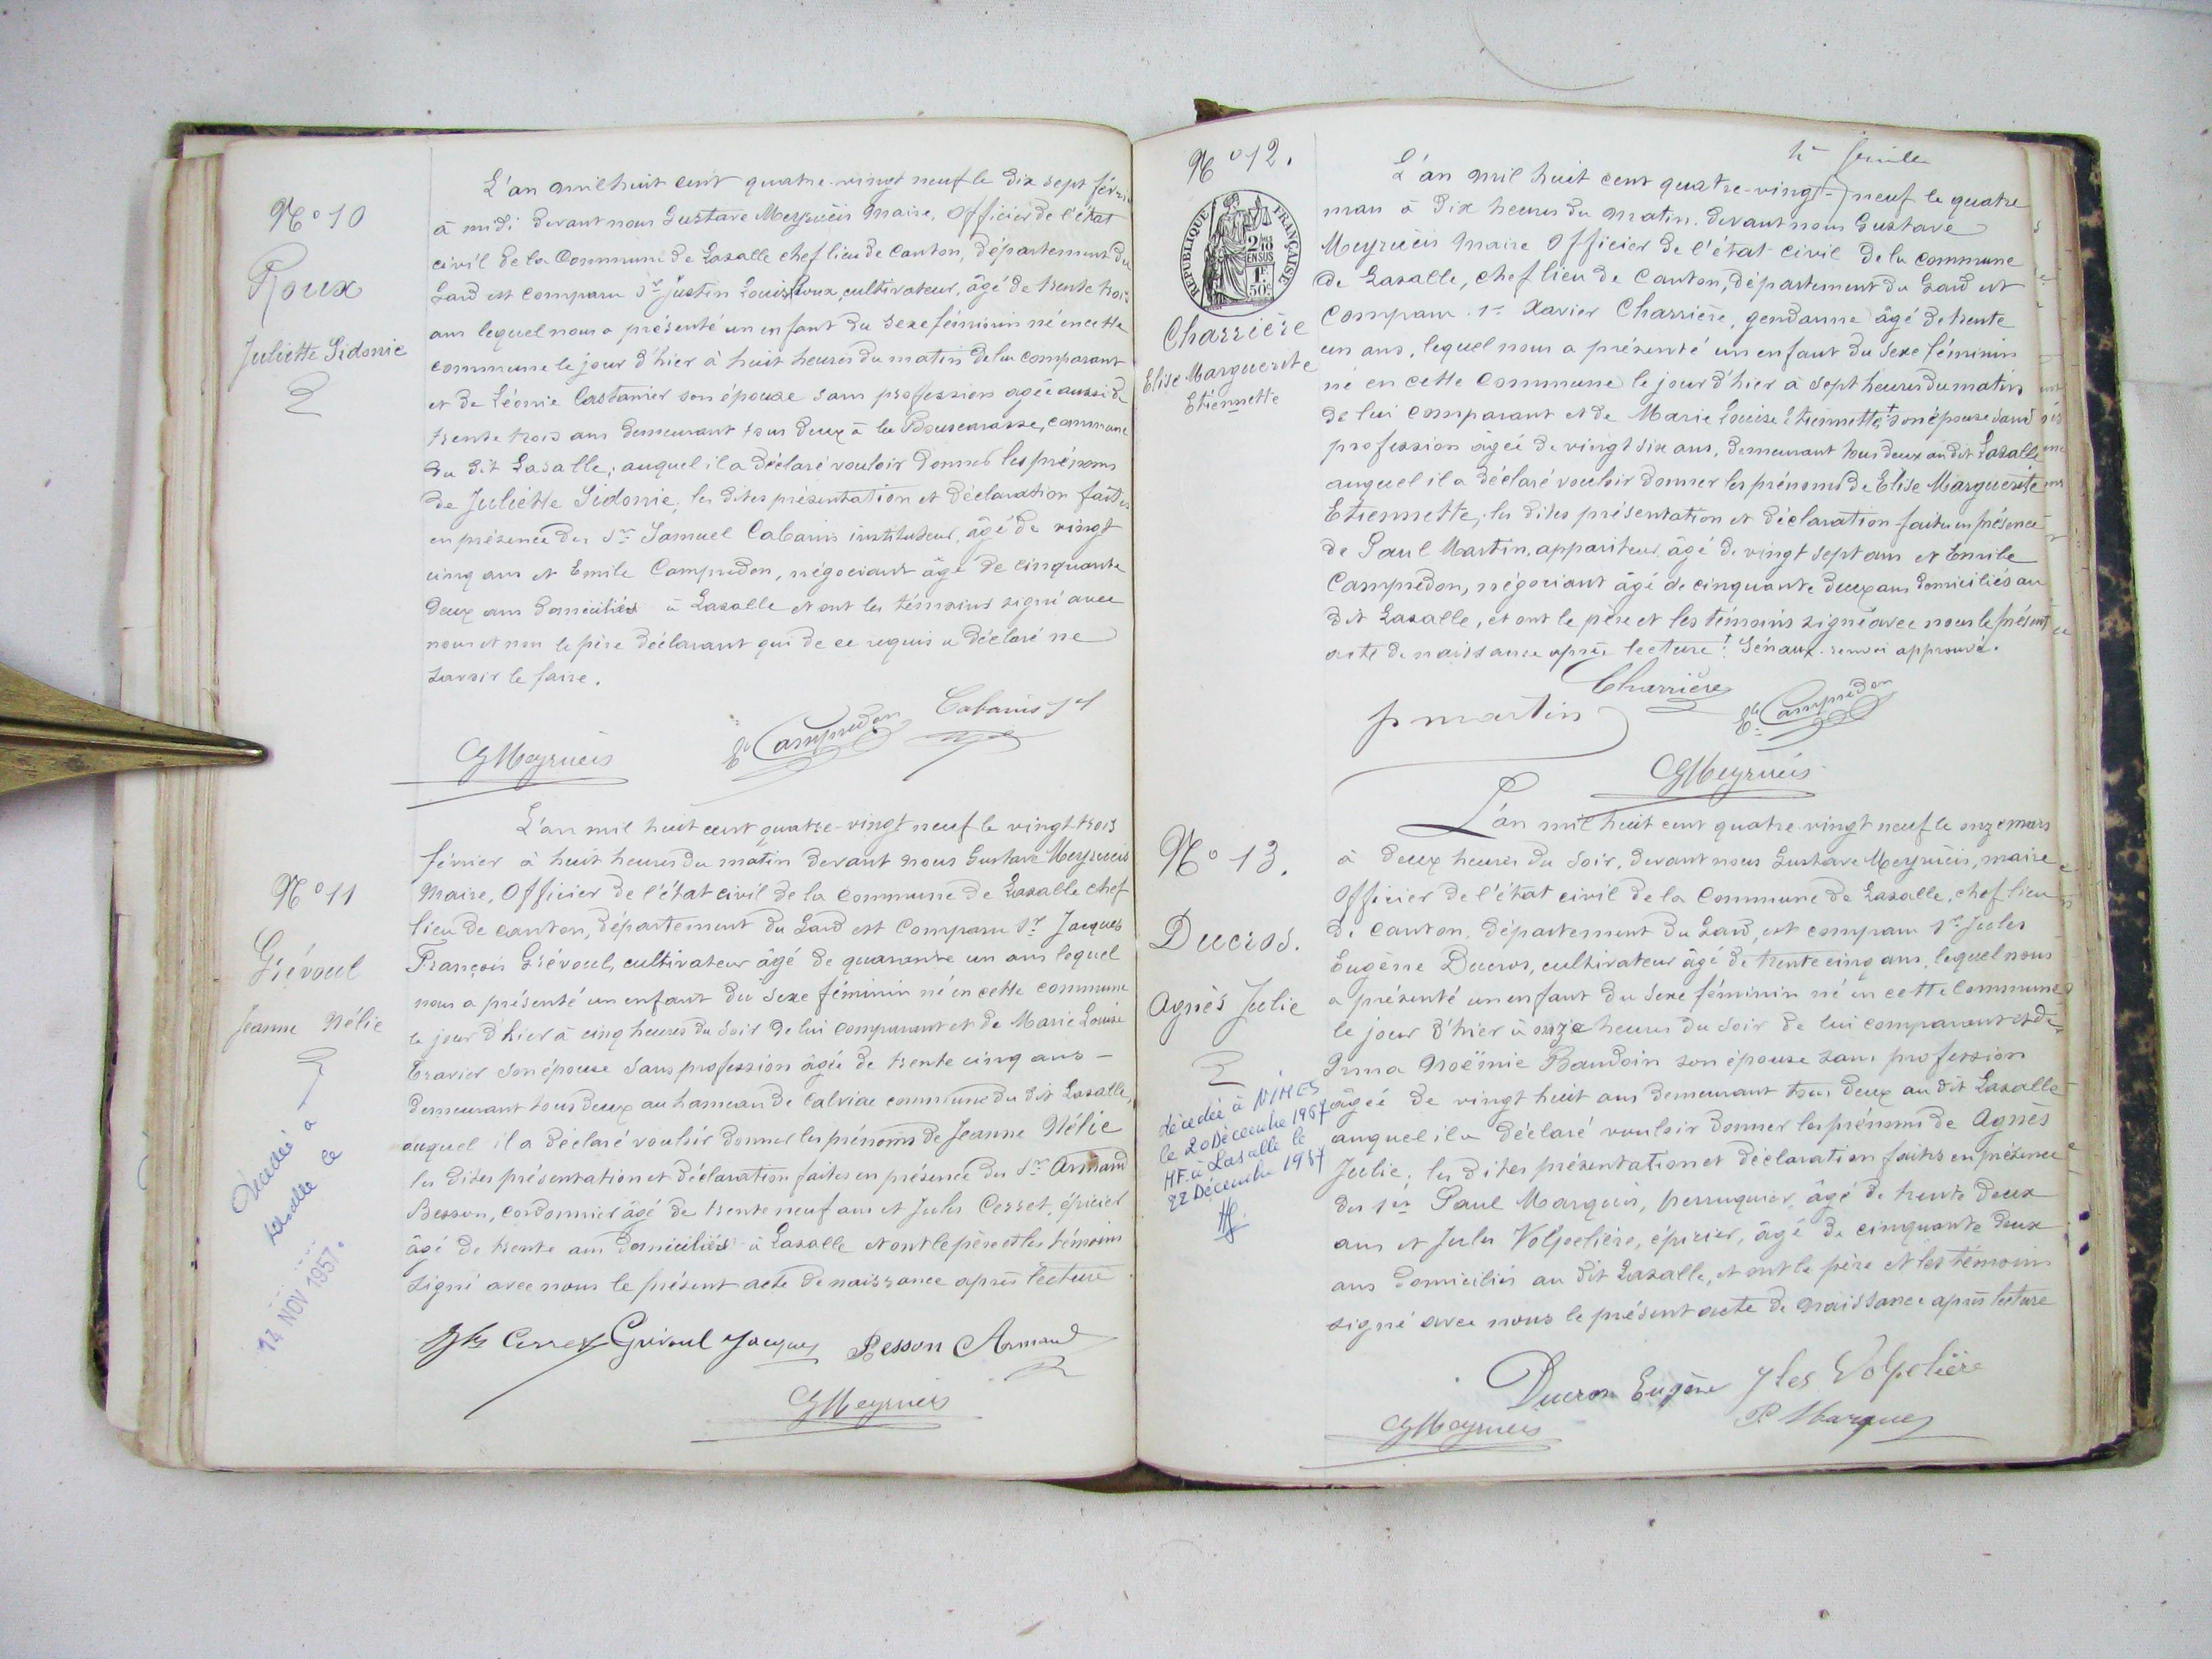 N° 10
Roux
Juliette Sidonie
L'an mil huit cent quatre-vingt neuf le dix sept févri
à midi devant nous Gustave Meyrueis Maire, Officier de l'état
civil de la Commune de Lasalle chef lieu de Canton, département du
Gard est comparu Sr Justin Louis Roux, cultivateur, âgé de trente trois
ans lequel nous a présenté un enfant du sexe féminin né en cette
commune le jour d'hier à huit heures du matin de lui comparant
et de Léonie Castanier son épouse sans profession agée aussi de
trente trois ans demeurant tous deux à la Bouscarasse, commune
du dit Lasalle, auquel il a déclaré vouloir donner les prénoms
de Juliette Sidonie, les dites présentation et déclaration faites
en présence des Srs Samuel Cabanis instituteur, âgé de vingt
cinq ans et Emile Campredon, négociant âgé de cinquante
deux ans domiciliés à Lasalle et ont les témoins signé avec
nous et non le père déclarant qui de ce requis a déclaré ne
savoir le faire.
Cabanis Sl
Ele Campredon
GMeyrueis
N° 11
Griévoul
Jeanne Nélie
Décédée à
Lasalle le
14 NOV 1957.
L'an mil huit cent quatre-vingt neuf le vingt trois
février à huit heures du matin devant nous Gustave Meyrueis
Maire, Officier de l'état civil de la Commune de Lasalle chef
lieu de canton, département du Gard est comparu Sr Jacques
François Griévoul, cultivateur âgé de quarante un ans lequel
nous a présenté un enfant du sexe féminin né en cette commune
le jour d'hier à cinq heures du soir de lui comparant et de Marie Louise
Travier son épouse sans profession âgée de trente cinq ans –
demeurant tous deux au hameau de Calviac commune du dit Lasalle,
auquel il a déclaré vouloir donner les prénoms de Jeanne Nélie
les dites présentation et déclaration faites en présence des Srs Armand
Besson, cordonnier âgé de trente neuf ans et Jules Cerret, épicier
âgé de trente ans domiciliés à Lasalle et ont le père et les témoins
signé avec nous le présent acte de naissance après lecture
Jles Cerret Griévoul Jacques Besson Armand
GMeyrueis
4e feuille
N° 12.
RÉPUBLIQUE FRANÇAISE
2/10
EN SUS
1F
50c
Charrière
Elise Marguerite
Etiennette
L'an mil huit cent quatre-vingt-neuf le quatre
mars à dix heures du matin. devant nous Gustave
Meyrueis Maire Officier de l'état civil de la commune
de Lasalle, chef lieu de Canton, département du Gard est
comparu Sr Xavier Charrière, gendarme âgé de trente
un ans, lequel nous a présenté un enfant du sexe féminin
né en cette Commune le jour d'hier à sept heures du matin
de lui comparant et de Marie Louise Etiennette † son épouse sans
profession âgée de vingt six ans, demeurant tous deux au dit Lasalle
auquel il a déclaré vouloir donner les prénoms de Elise Marguerite
Etiennette, les dites présentation et déclaration faites en présence
de Paul Martin, appariteur, âgé de vingt sept ans et Emile
Campredon, négociant âgé de cinquante deux ans domiciliés au
dit Lasalle, et ont le père et les témoins signé avec nous le présent
acte de naissance après lecture † Sénaux. renvoi approuvé.
Charrière
p martin
Ele Campredon
GMeyrueis
N° 13.
Ducros.
Agnès Julie
décédée à NIMES
le 20 Décembre 1967
MF. à Lasalle le
22 Décembre 1967
L'an mil huit cent quatre vingt neuf le onze mars
à deux heures du soir, devant nous Gustave Meyrueis, maire
Officier de l'état civil de la Commune de Lasalle, chef lieu
de Canton, département du Gard, est comparu Sr Jules
Eugène Ducros, cultivateur âgé de trente cinq ans, lequel nous
a présenté un enfant du sexe féminin né en cette Commune
le jour d'hier à onze heures du soir de lui comparant et de
Irma Noëmie Baudoin son épouse sans profession
âgée de vingt huit ans demeurant tous deux au dit Lasalle
auquel il a déclaré vouloir donner les prénoms de Agnès
Julie, les dites présentation et déclaration faites en présence
des Srs Paul Marquès, perruquier, âgé de trente deux
ans et Jules Volpelière, épicier, âgé de cinquante deux
ans domiciliés au dit Lasalle, et ont le père et les témoins
signé avec nous le présent acte de naissance après lecture
Ducros Eugène Jles Volpelière
GMeyrueis P. Marques